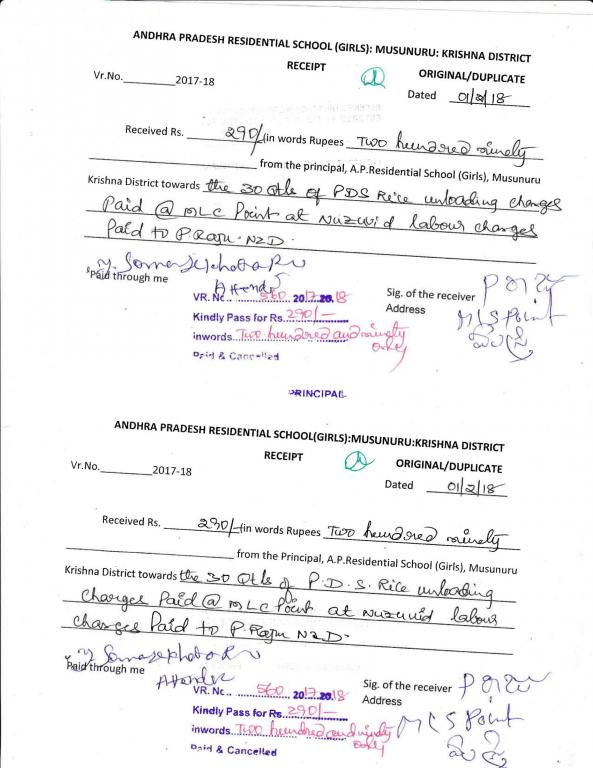 ANDHRA PRADESH RESIDENTIAL SCHOOL (GIRLS): MUSUNURU: KRISHNA DISTRICT
RECEIPT
Vr.No.__________2017-18 ORIGINAL/DUPLICATE
Dated 01/2/18
Received Rs. 290/- (in words Rupees Two hundred ninety
from the principal, A.P.Residential School (Girls), Musunuru
Krishna District towards the 30 Qtls of PDS Rice unloading charges
Paid @ MLC Point at Nuzuvid labour charges
Paid to P.Raju. NZD.
Paid through me Attender Sig. of the receiver
Address
MLS Point
VR. No. 560 2017.2018
Kindly Pass for Rs. 290/-
inwords Two hundred and ninety
only
Paid & Cancelled
PRINCIPAL
ANDHRA PRADESH RESIDENTIAL SCHOOL(GIRLS):MUSUNURU:KRISHNA DISTRICT
RECEIPT
Vr.No.__________2017-18 ORIGINAL/DUPLICATE
Dated 01/2/18
Received Rs. 290/- (in words Rupees Two hundred ninety
from the Principal, A.P.Residential School (Girls), Musunuru
Krishna District towards the 30 Qtls of P.D.S. Rice unloading
charges Paid @ MLC Point at Nuzuvid labour
charges Paid to P.Raju NZD.
Paid through me Attender Sig. of the receiver
Address
MLS Point
VR. No. 560 2017.2018
Kindly Pass for Rs. 290/-
inwords Two hundred and ninety
only
Paid & Cancelled